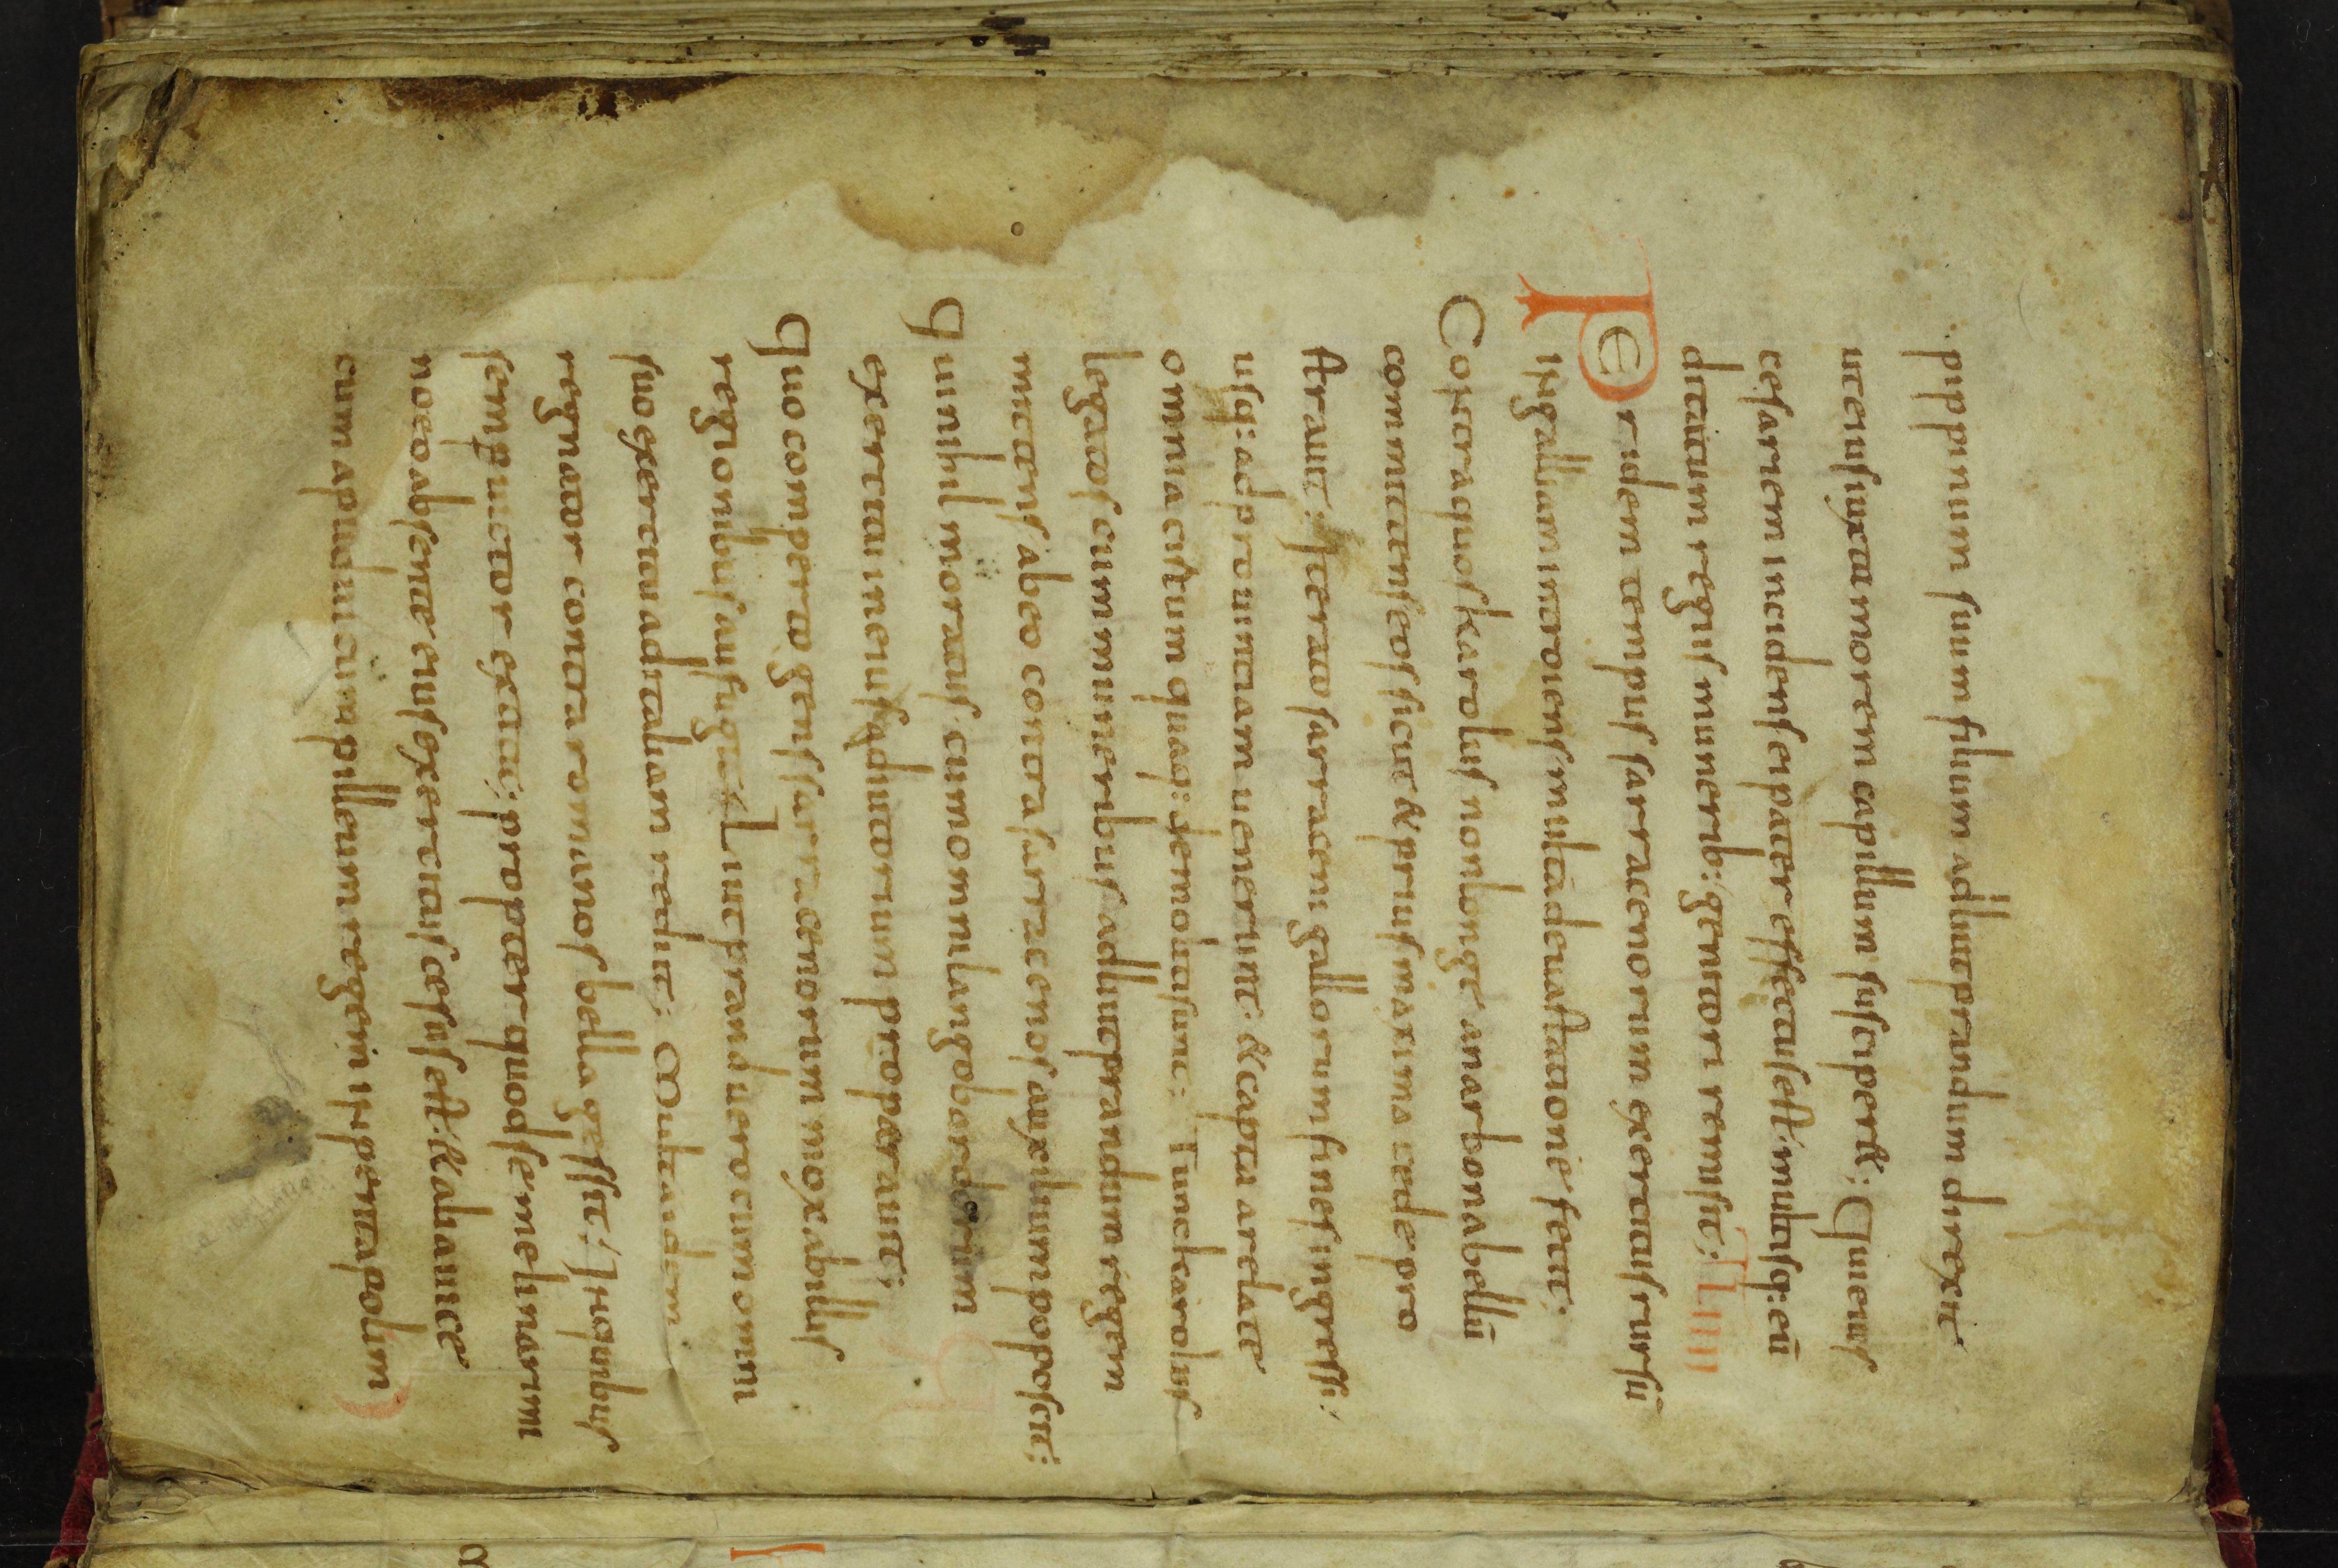 pippinum suum filium ad liutprandum direxit
ut eius iuxta morem capillum susciper&; Qui eius
cesariem incidens ei pater effectus est; multisq: eū
ditatum regiis munerib: genitori remisit; LIIII
Per idem tempus sarracenorum exercitus rursū
in galliam introiens multā deuastationē fecit;
Contra quos karolus non longe a narbona bellū
committens eos sicut & prius maxima cede pro
strauit; iterato sarraceni gallorum fines ingressi;
usq: ad prouinciam uenerunt; & capta arelate
omnia circum quaq: demolita sunt; Tunc karolus
legatos cum muneribus ad liutprandum regem
mittens ab eo contra sarracenos auxilium poposcit;
Qui nihil moratus cum omni langobardorum
exercitu in eius adiutorium properauit;
Quo comperto gens sarracenorum mox ab illis
regionibus aufugit; Liutprand uero cum omni
suo exercitu ad italiam rediit; Multa idem
regnator contra romanos bella gessit; In quibus
semp uictor extitit; propter quod semel in arim
no eo absente eius exercitus cesus est; & alia uice
cum apud uicum pilleum regem in pentapolim